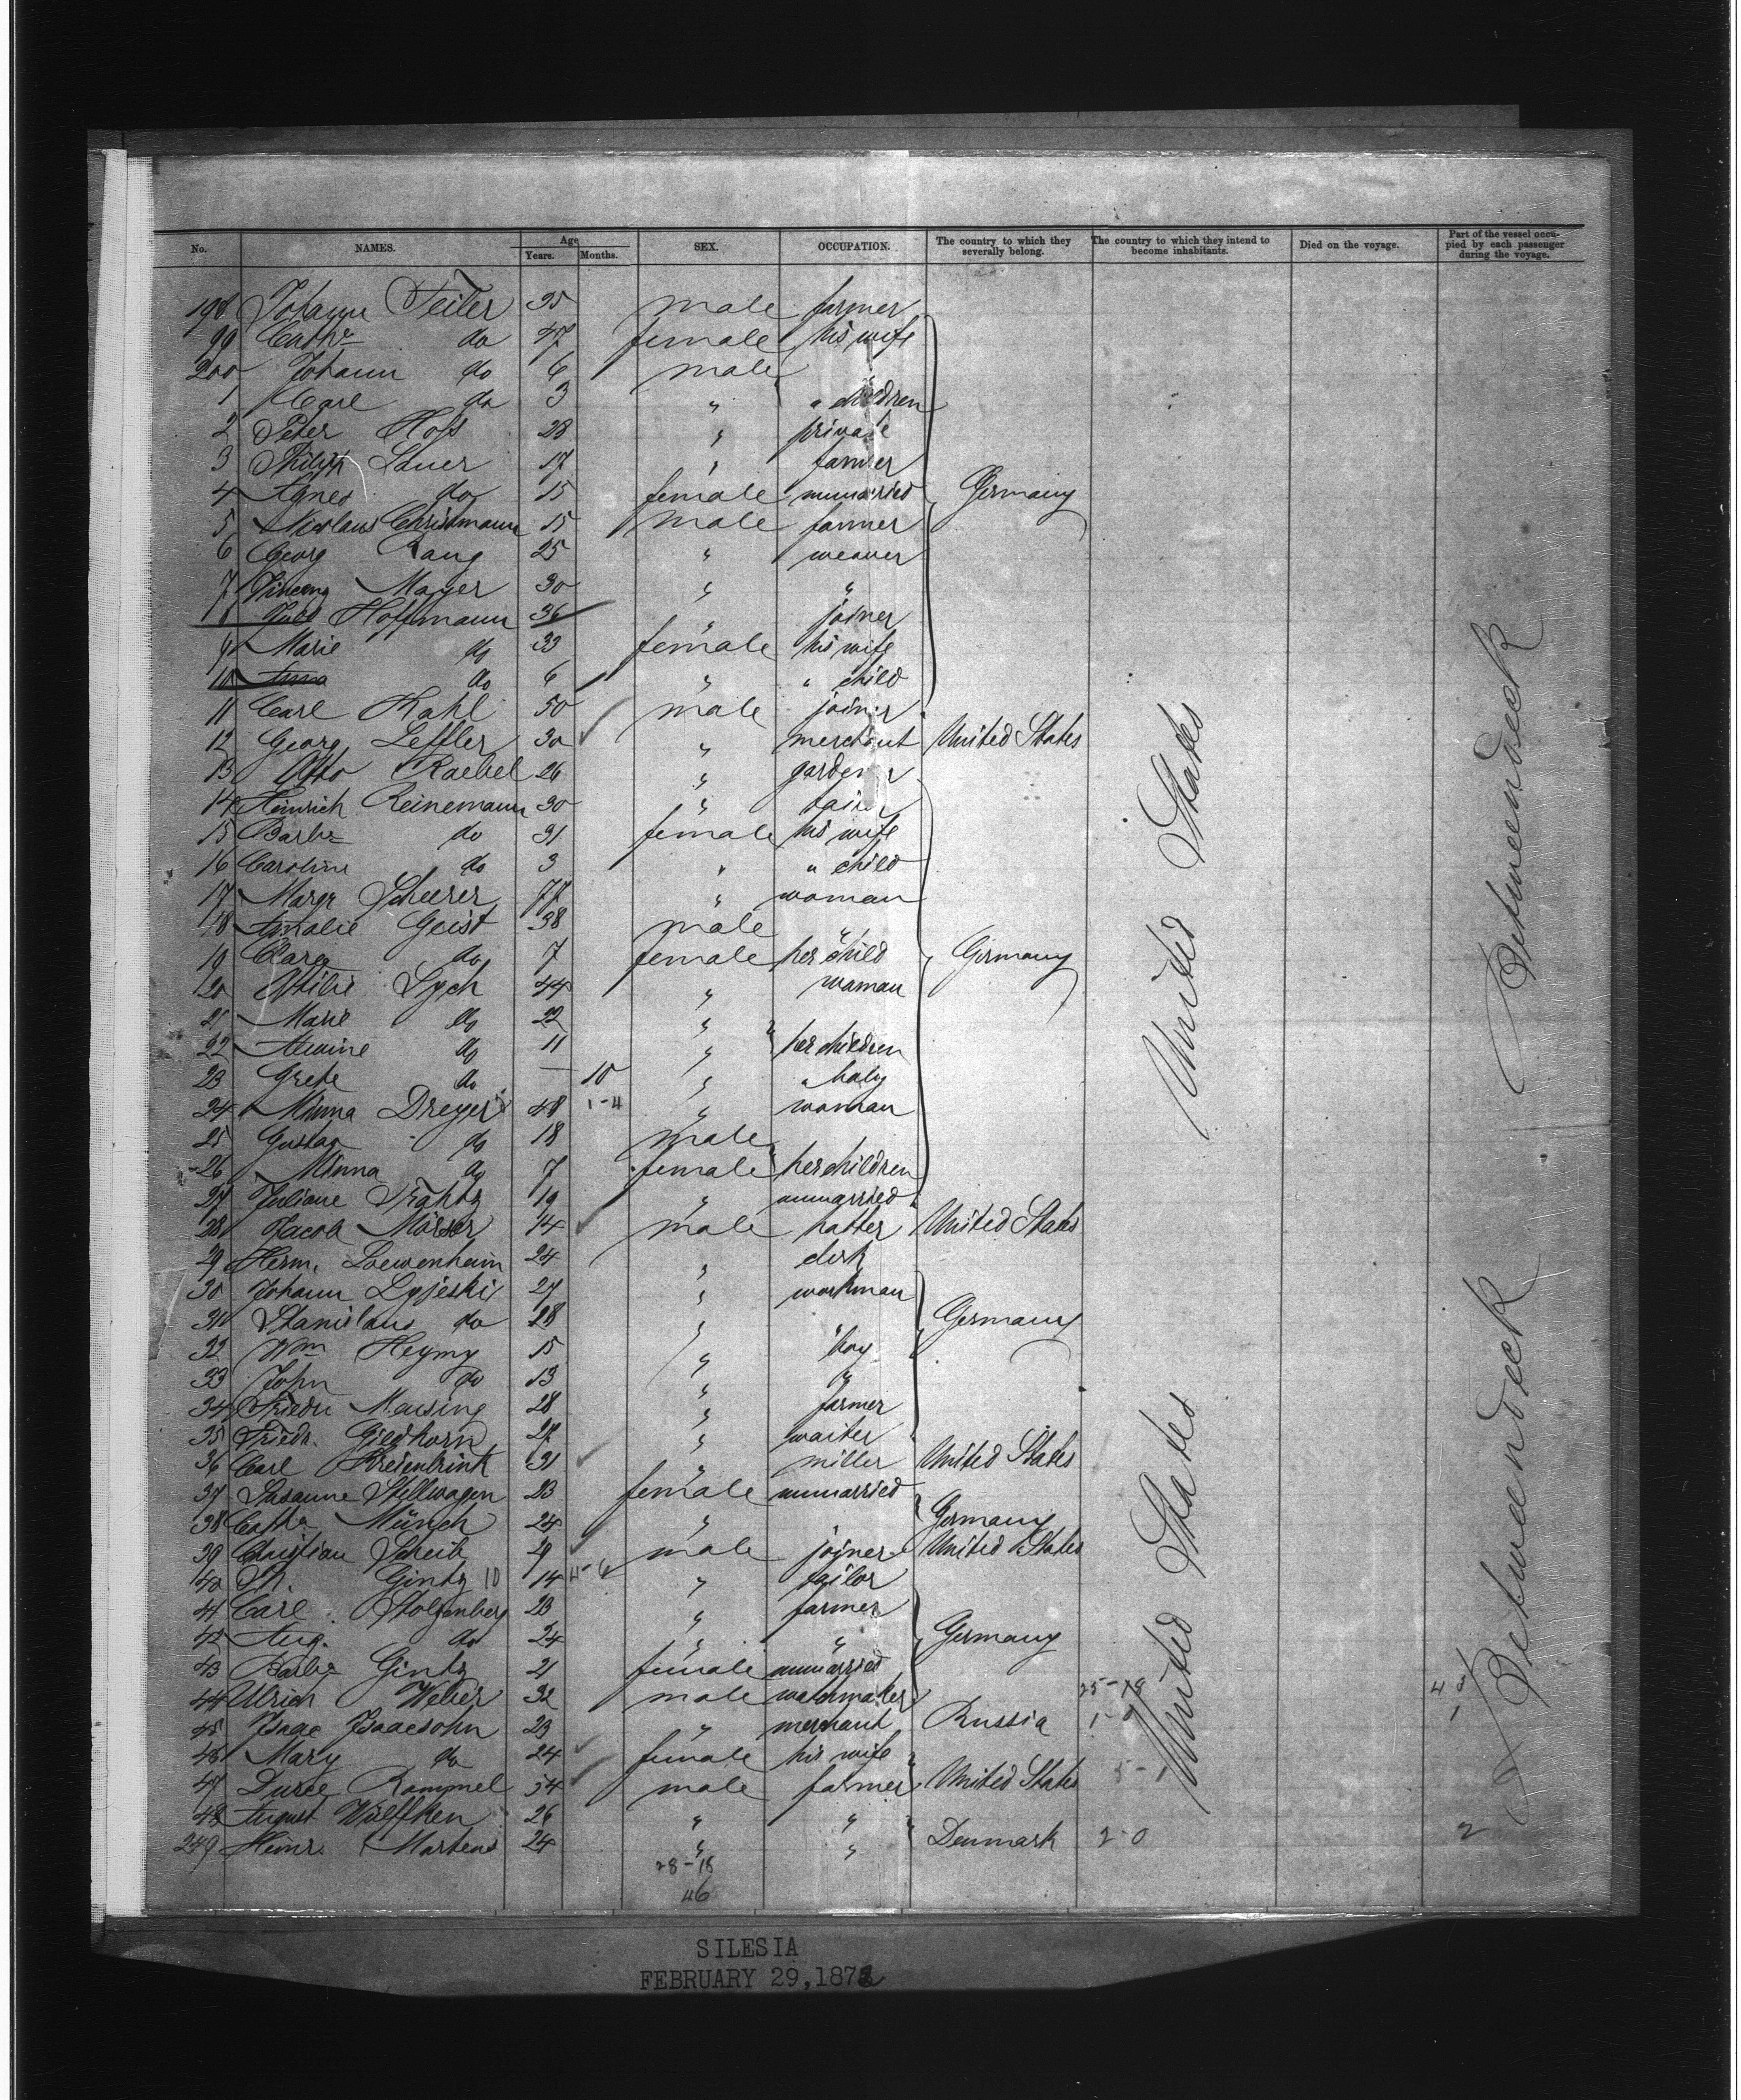 No. NAMES. Age Years. Months. SEX. OCCUPATION. The country to which they severally belong. The country to which they intend to become inhabitants. Died on the voyage. Part of the vessel occupied by each passenger during the voyage.
198 Johann Feiler 35 male farmer
99 Cathe do 47 female his wife
200 Johann do 6 male
1 Carl do 3 " " children
2 Peter Hoff 28 " private
3 Philipp Lauer 17 " farmer
4 Agnes do 15 female unmarried Germany
5 Nicolaus Christmann 15 male farmer
6 Georg Rang 25 " weaver
7 Vincenz Mayer 30 " "
8 Hoffmann 36 " joiner
9 Marie do 33 female his wife
10 Anna do 6 " " child
11 Carl Kahl 50 male joiner
12 Georg Leffler 30 " merchant United States
13 Otto Raebel 26 " gardener
14 Heinrich Reinemann 30 "
15 Barba do 31 female his wife
16 Caroline do 3 " " child
17 Margr Scheerer 77 " woman
18 Amalie Geist 38 male "
19 Clara do 7 female her child Germany
20 Ottilie Lych 44 " woman
21 Marie do 22 "
22 Alwine do 11 " her children
23 Grete do — 10 " " baby
24 Minna Dreyer 48 1-4 " woman
25 Gustav do 18 male
26 Minna do 7 female her children
27 Juliane Trahtz 19 " unmarried
28 Jacob Mörser 14 male hatter United States
29 Herm. Loewenheim 24 " clerk
30 Johann Lyjeski 27 " workman
31 Stanislaus do 28 " " Germany
32 Wm Heymy 15 " boy
33 John do 13 " "
34 Friedr Mensing 28 " farmer
35 Friedr. Gieshorn 27 " waiter
36 Carl Kreienbrink 31 " miller United States
37 Susanne Stellwagen 23 female unmarried
38 Catha Münch 24 " " Germany
39 Christian Scheib 29 male joiner United States
40 Gintz 10 14 " tailor
41 Carl Stolzenberg 23 " farmer
42 Aug. do 24 " " Germany
43 Barba Gintz 21 female unmarried
44 Ulrich Weber 32 male watchmaker 25-18 43
45 Isaac Isaacsohn 23 " merchant Russia 1-0 1
46 Mary do 24 female his wife
47 Rommel 54 male farmer United States 5-1
48 August Wülffken 26 " "
249 Heinr. Martens 24 " " Denmark 2-0 2
28-18
46
United States
United States
Betweendeck
Betweendeck
SILESIA
FEBRUARY 29, 1872